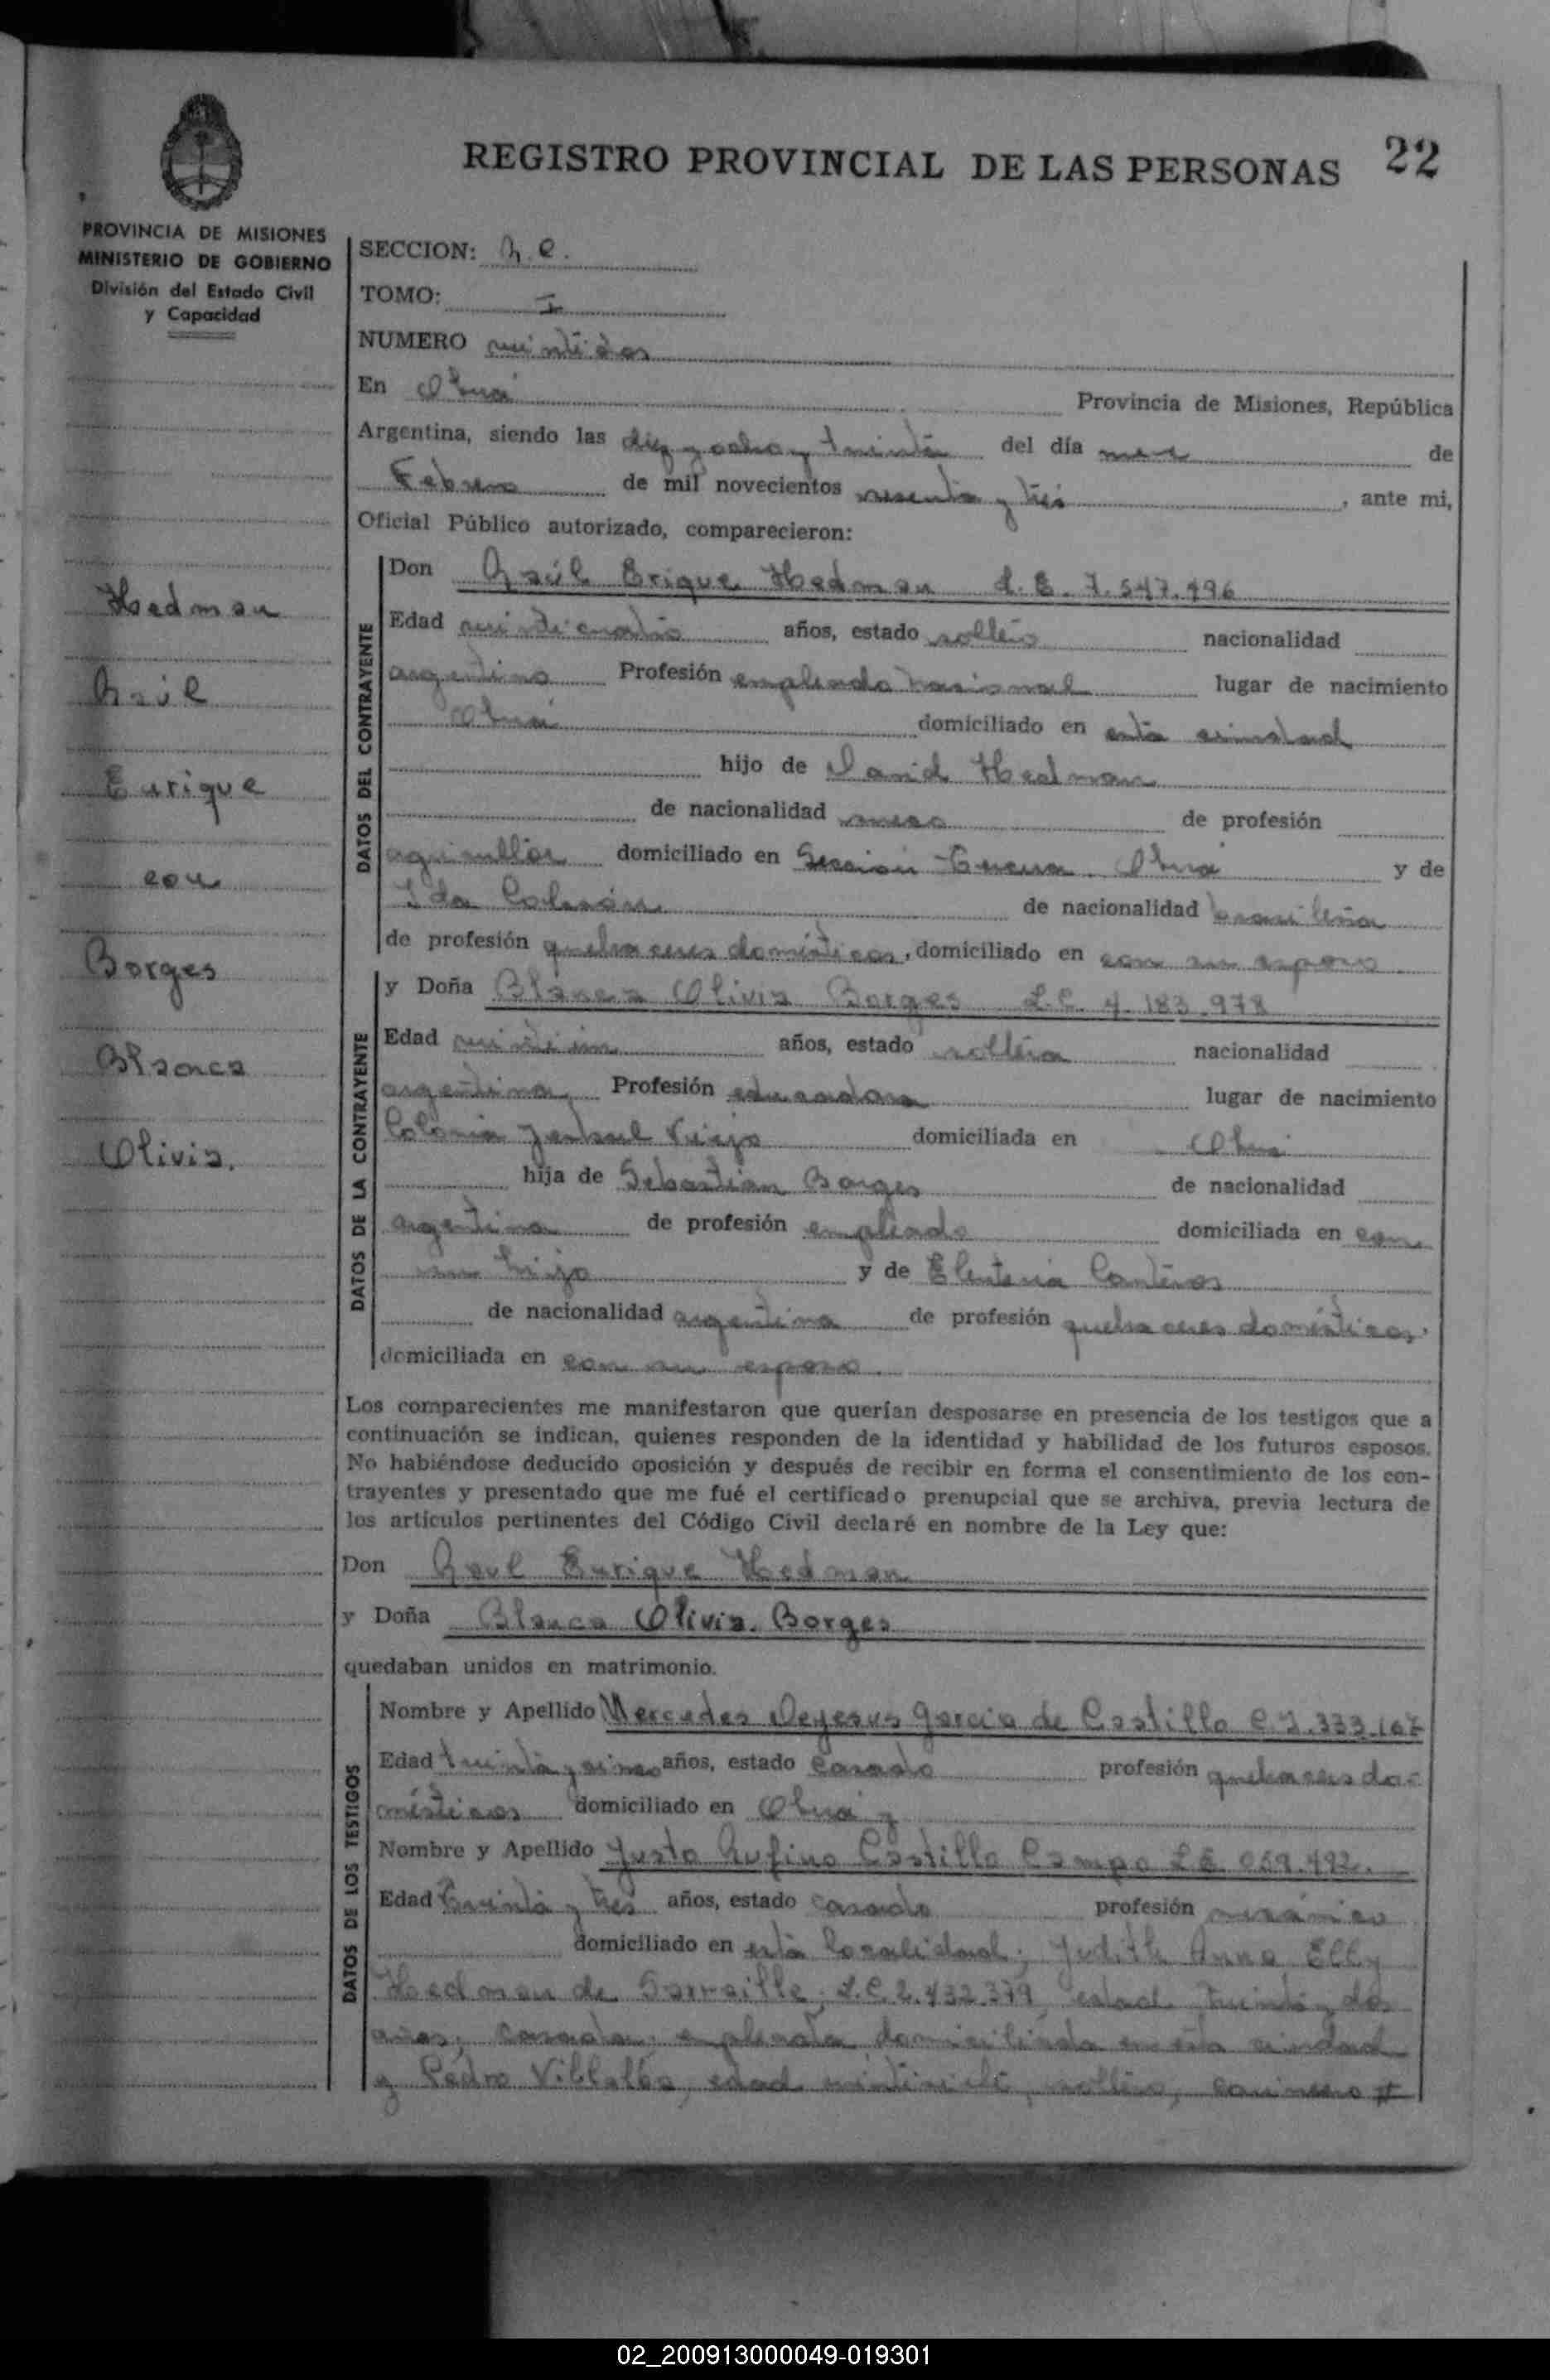 REGISTRO PROVINCIAL DE LAS PERSONAS 22
PROVINCIA DE MISIONES
MINISTERIO DE GOBIERNO
División del Estado Civil
y Capacidad
Hedman
Raúl
Enrique
con
Borges
Blanca
Olivia.
SECCION: R.C.
TOMO: I
NUMERO veintidos
En Oberá Provincia de Misiones, República
Argentina, siendo las diez y ocho y treinta del día de
Febrero de mil novecientos sesenta y tres, ante mi,
Oficial Público autorizado, comparecieron:
DATOS DEL CONTRAYENTE
Don Raúl Erique Hedman L.E. 7.547.496
Edad veinticuatro años, estado soltero nacionalidad
argentino Profesión empleado nacional lugar de nacimiento
Oberá domiciliado en esta ciudad
hijo de David Hedman
de nacionalidad sueco de profesión
agricultor domiciliado en Sección Tercera. Oberá y de
Ida de nacionalidad brasileña
de profesión quehaceres domésticos, domiciliado en con su esposo
DATOS DE LA CONTRAYENTE
y Doña Blanca Olivia Borges L.C. 4.183.978
Edad años, estado soltera nacionalidad
argentina Profesión educadora lugar de nacimiento
Colonia Yerbal Viejo domiciliada en Oberá
hija de Sebastián Borges de nacionalidad
argentina de profesión empleado domiciliada en con
su hija y de Eleuteria Canteros
de nacionalidad argentina de profesión quehaceres domésticos,
domiciliada en con su esposo.
Los comparecientes me manifestaron que querían desposarse en presencia de los testigos que a
continuación se indican, quienes responden de la identidad y habilidad de los futuros esposos.
No habiéndose deducido oposición y después de recibir en forma el consentimiento de los con-
trayentes y presentado que me fué el certificado prenupcial que se archiva, previa lectura de
los artículos pertinentes del Código Civil declaré en nombre de la Ley que:
Don Raul Enrique Hedman
y Doña Blanca Olivia Borges
quedaban unidos en matrimonio.
DATOS DE LOS TESTIGOS
Nombre y Apellido Mercedes Deyesus Garcia de Castillo C.I. 333.167
Edad treinta y cinco años, estado casada profesión quehaceres do-
mésticos domiciliado en Oberá y
Nombre y Apellido Justo Rufino Castillo Campo L.E. 059.492.
Edad treinta y tres años, estado casado profesión mecánico
domiciliado en esta localidad; Judith Anna Elly
Hedman de L.C. 2.432.379, edad treinta y dos
años, casada, empleada domiciliada en esta ciudad
y Pedro Villalba, edad veintisiete, soltero,
02_200913000049-019301